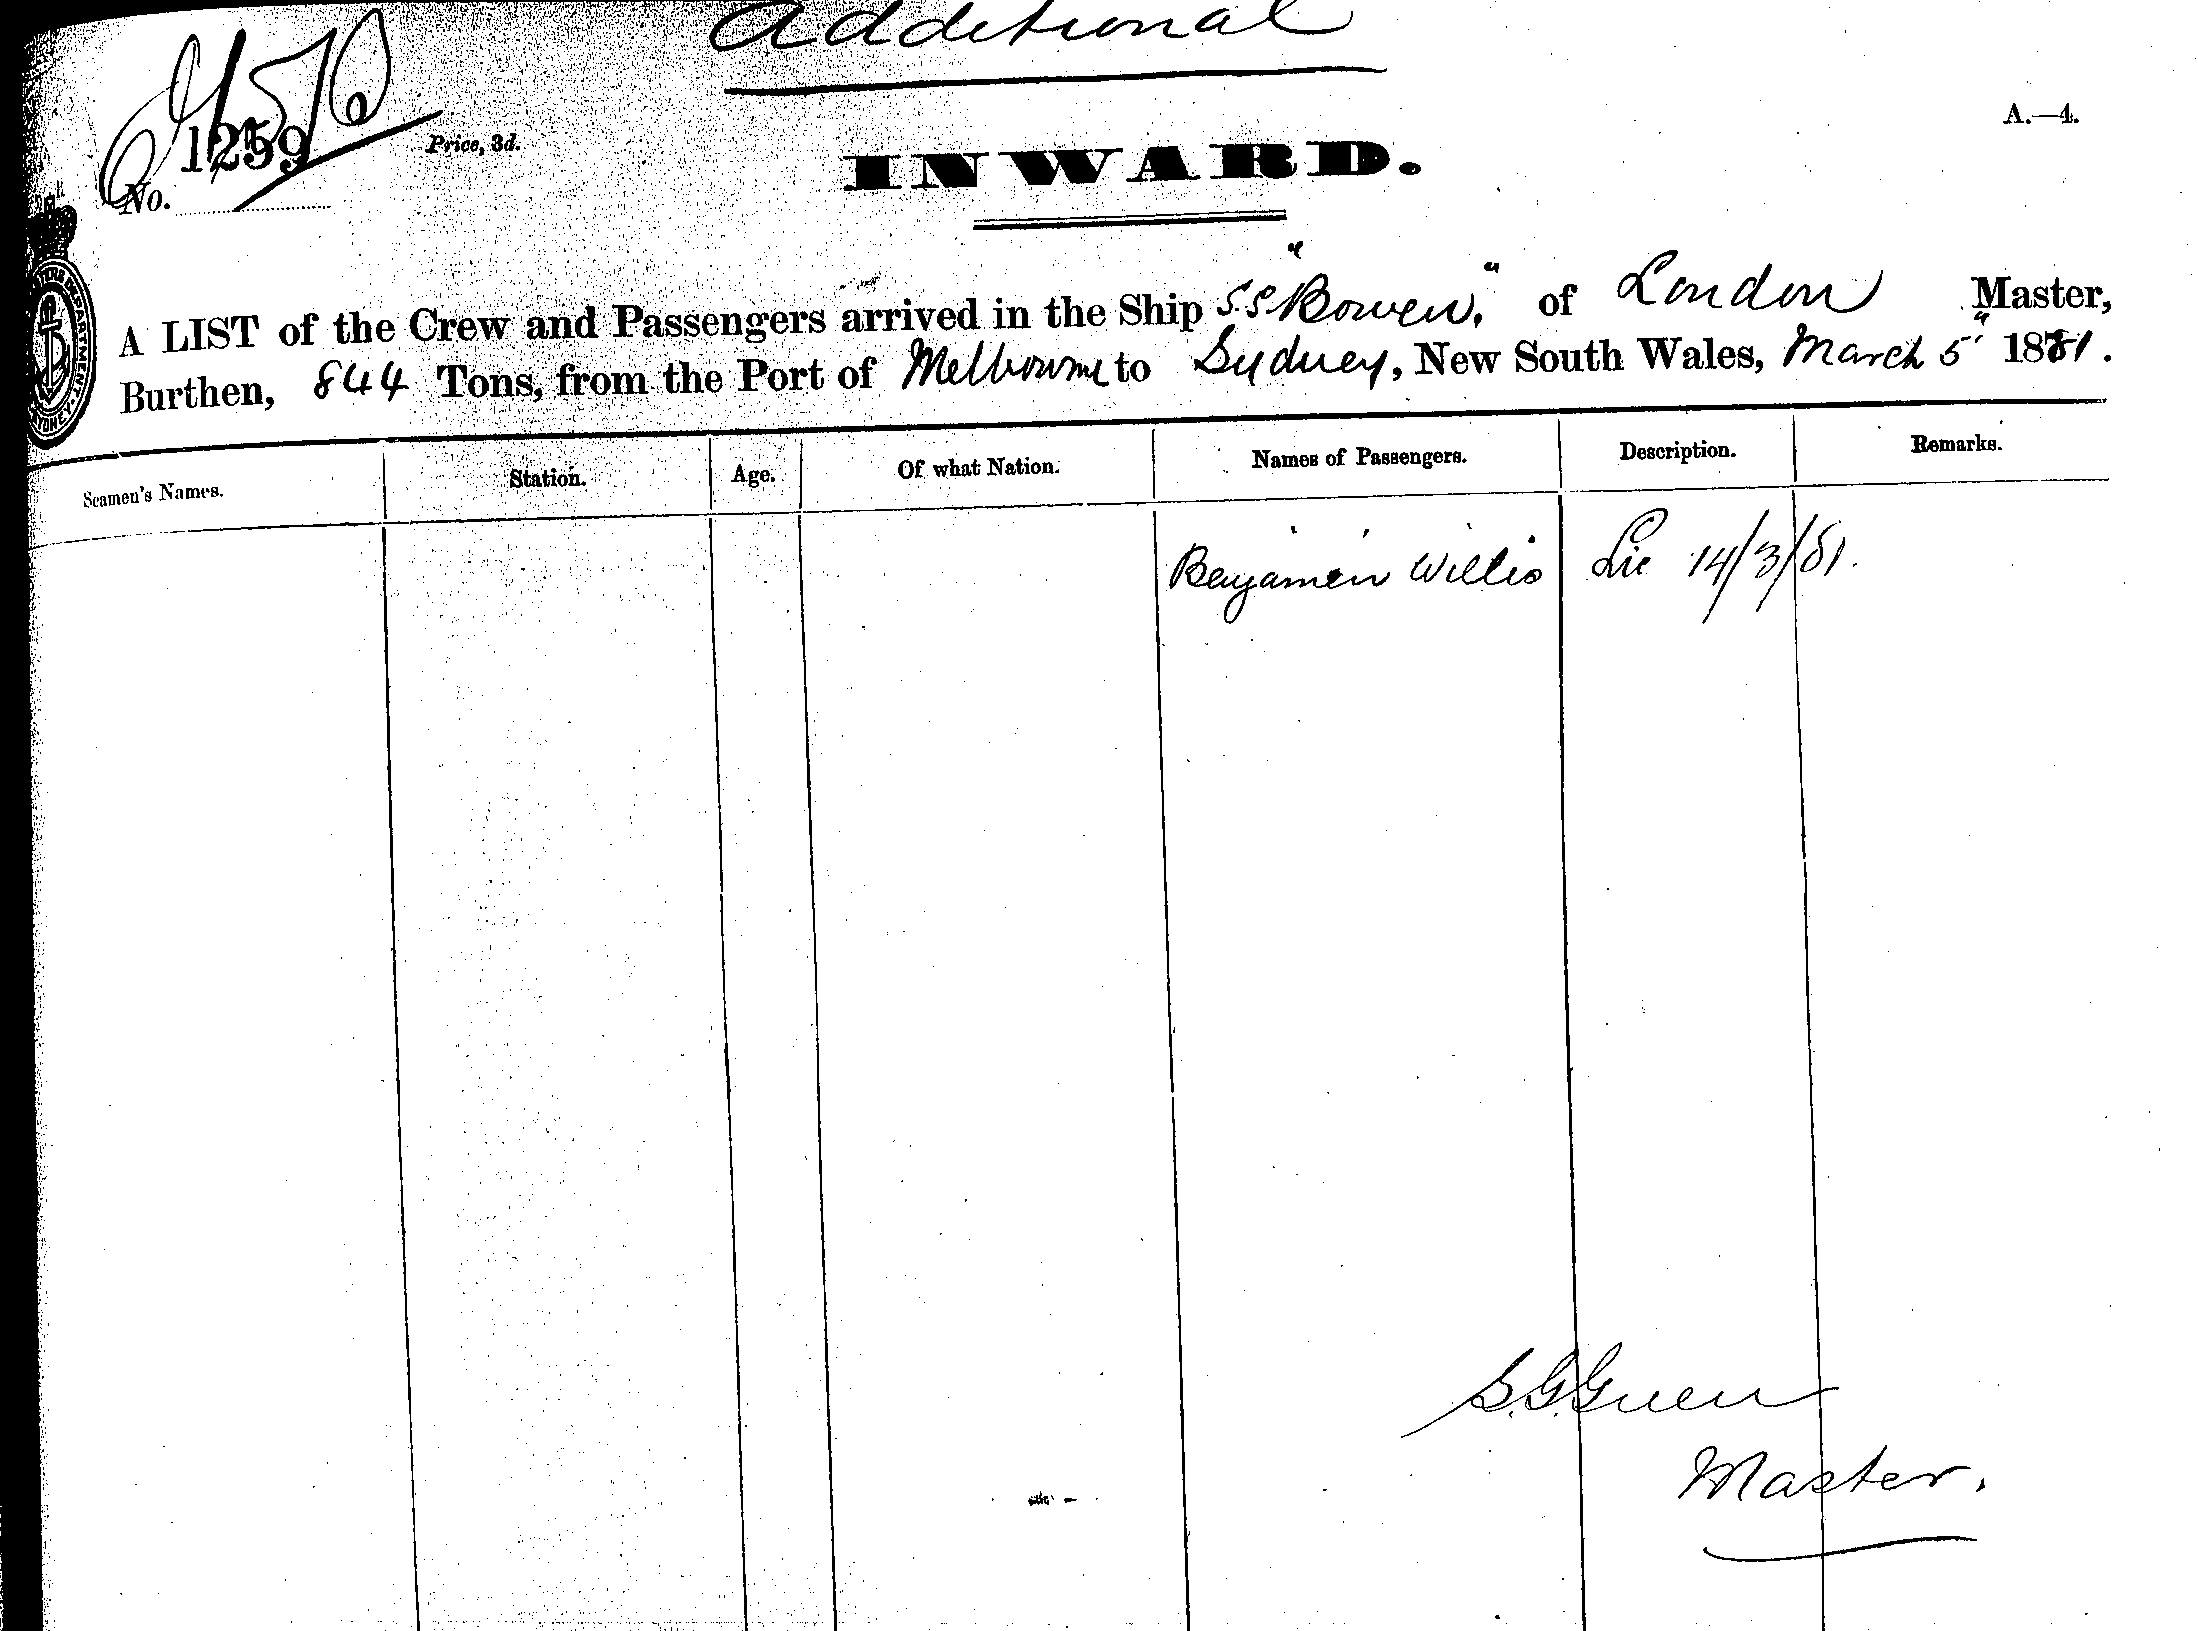 Additional
1259
No.
Price, 3d.
A.—4.
INWARD.
A LIST of the Crew and Passengers arrived in the Ship S.S. "Bowen," of London Master,
Burthen, 844 Tons, from the Port of Melbourne to Sydney, New South Wales, March 5" 1881.
Seamen's Names. Station. Age. Of what Nation. Names of Passengers. Description. Remarks.
Benjamin Willis Lic 14/3/81.
S.G. Green
Master.